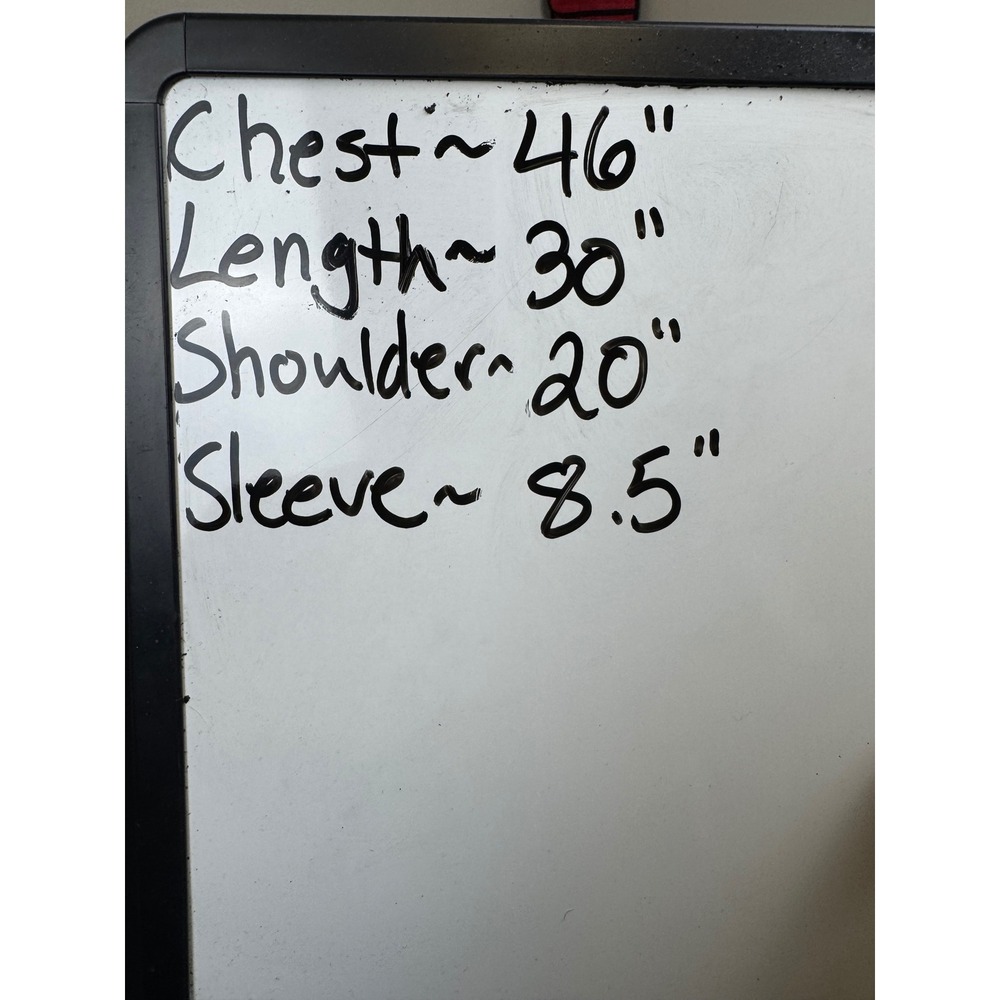 Chest~ 46"
Length~ 30"
Shoulder~ 20"
Sleeve~ 8.5"